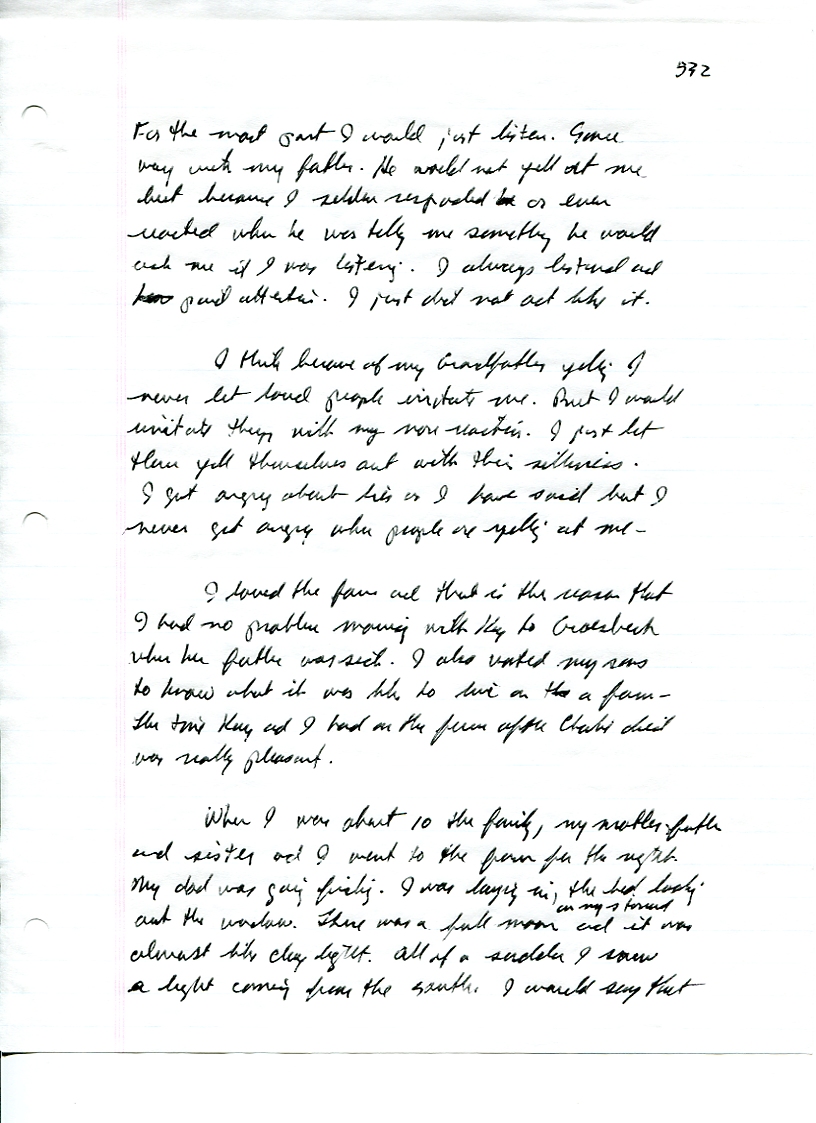 932
For the most part I would just listen. Same
way with my father. He would not yell at me
but because I seldom responded or even
reacted when he was telling me something he would
ask me if I was listening. I always listened and
paid attention. I just did not act like it.
I think because of my Grandfather yelling I
never let loud people irritate me. But I would
irritate them with my non reaction. I just let
them yell themselves out with their silliness.
I get angry about lies as I have said but I
never get angry when people are yelling at me-
I loved the farm and that is the reason that
I had no problem moving with Kay to Groesbeck
when her father was sick. I also wanted my sons
to know what it was like to live on a farm-
The time Kay and I had on the farm after Charlie died
was really pleasant.
When I was about 10 the family, my mother, father
and sister and I went to the farm for the night.
My dad was going fishing. I was laying in the bed looking
on my stomach
out the window. There was a full moon and it was
almost like day light. All of a sudden I saw
a light coming from the south. I would say that